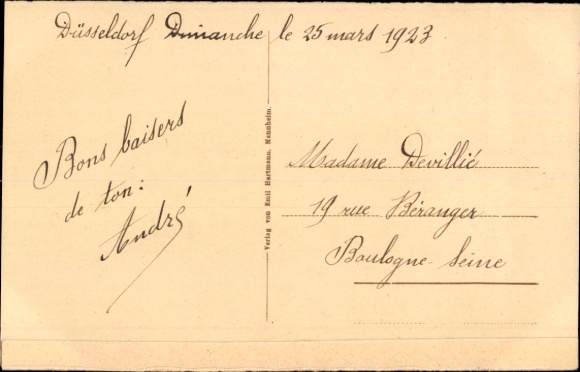 Düsseldorf Dimanche le 25 mars 1923.
Bons baisers
de ton:
André
Verlag von Emil Hartmann, Mannheim.
Madame Devillié
19 rue Béranger
Boulogne-Seine